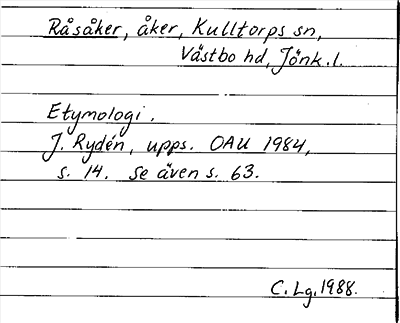 Råsåker, åker, Kulltorps sn,
Västbo hd, Jönk.l.
Etymologi.
J. Rydén, upps. OAU 1984,
s. 14. Se även s. 63.
C. Lg. 1988.